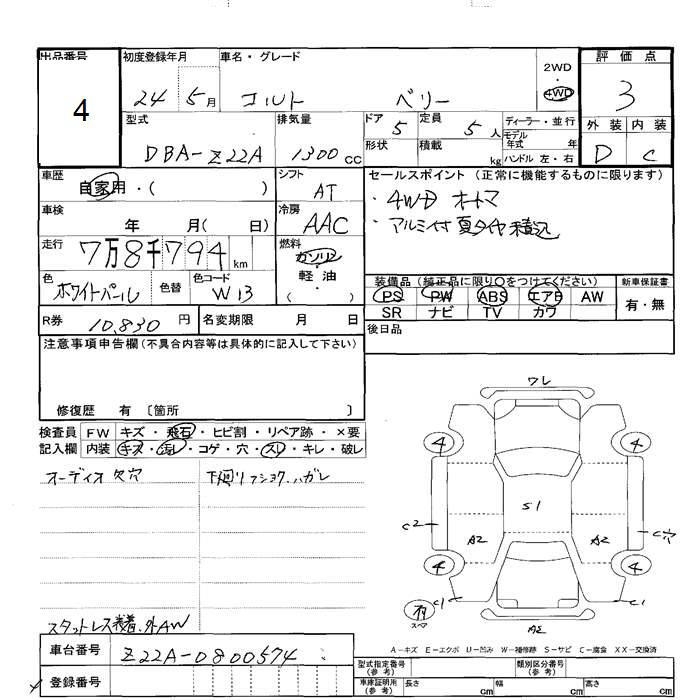 出品番号 4
初度登録年月 24 5月
車名・グレード コルト ベリー
2WD・4WD
評価点 3
外装 内装
D C
型式 DBA-Z22A
排気量 1300 CC
ドア 5
定員 5 人
ディーラー・並行
モデル年式 年
形状
積載 kg
ハンドル 左・右
車歴 自家用・( )
シフト AT
セールスポイント (正常に機能するものに限ります)
・4WD オートマ
・アルミ付夏タイヤ積込
車検 年 月( 日)
冷房 AAC
走行 7万8千794 km
燃料 ガソリン・軽油 ( )
色 ホワイトパール
色替
色コード W13
装備品 (純正品に限り○をつけてください)
PS PW ABS エアB AW
SR ナビ TV カワ
新車保証書 有・無
R券 10,830 円
名変期限 月 日
後日品
注意事項申告欄(不具合内容等は具体的に記入して下さい)
修復歴 有 〔箇所 〕
検査員記入欄
FW キズ・飛石・ヒビ割・リペア跡・×要
内装 キズ・汚レ・コゲ・穴・スレ・キレ・破レ
オーディオ欠穴
下廻リフショク、ハガレ
スタットレス装着、外AW
ワレ
4 4
S1
C2
A2 A2
C穴
4 4
C1 C1
有
スペア
A2
A-キズ E-エクボ U-凹み W-補修跡 S-サビ C-腐食 XX-交換済
車台番号 Z22A-0800574
登録番号
型式指定番号(参考)
類別区分番号(参考)
車庫証明用(参考) 長さ cm 幅 cm 高さ cm